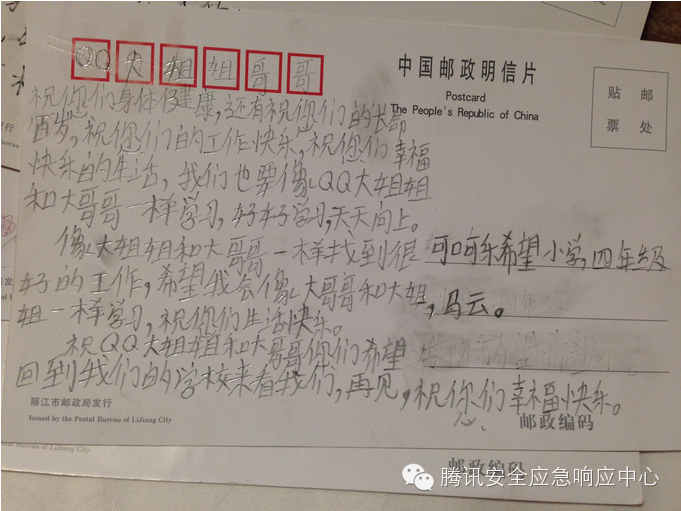 QQ大姐姐哥哥
中国邮政明信片
Postcard
The People's Republic of China
贴 邮
票 处
祝您们身体健康,还有祝您们的长命
百岁,祝您们的工作快乐,祝您们幸福
快乐的生活,我们也要像QQ大姐姐
和大哥哥一样学习,好好学习,天天向上。
像大姐姐和大哥哥一样找到很
好的工作,希望我会像大哥哥和大姐
姐一样学习,祝你们生活快乐。
祝QQ大姐姐和大哥哥你们希望
回到我们的学校来看我们,再见,祝你们幸福快乐。
可口可乐希望小学,四年级
,马云。
丽江市邮政局发行
Issued by the Postal Bureau of LiJiang City
邮政编码
Postal Bureau of LiJiang City
邮政编码
腾讯安全应急响应中心